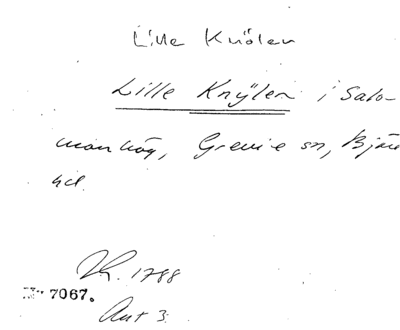 Lille Knölen
Lille Knÿlen i Salo-
monhög, Grevie sn, Bjäre
hd.
1788
7067.
Ant 3.